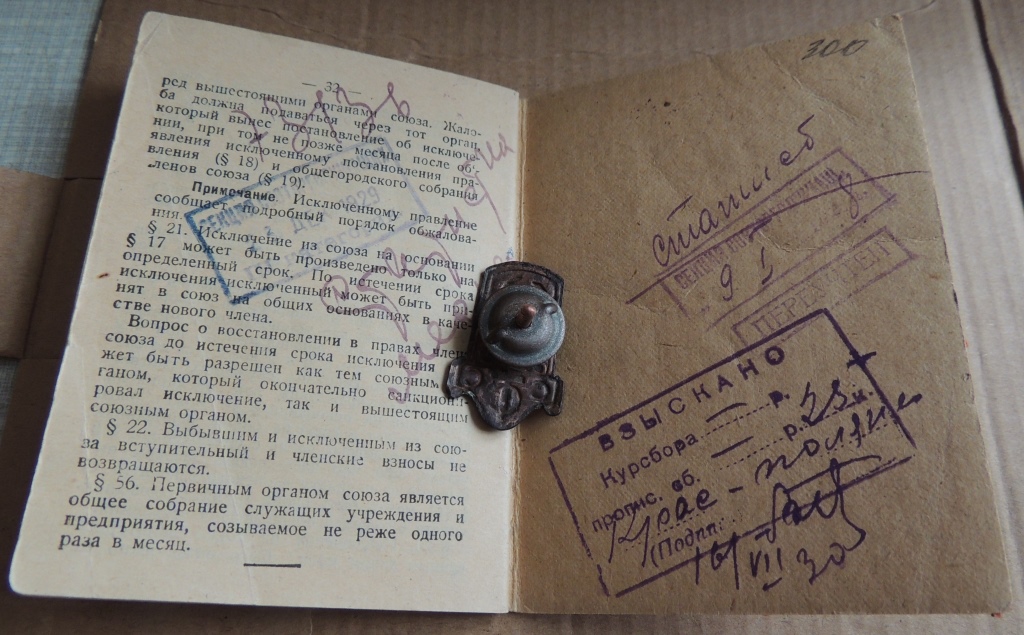 — 32 —
ред вышестоящими органами союза. Жало-
ба должна подаваться через тот орган,
который вынес постановление об исключе-
нии, при том не позже месяца после объ-
явления исключенному постановления пра-
вления (§ 18) и общегородского собрания
членов союза (§ 19).
Примечание. Исключенному правление
сообщает подробный порядок обжалова-
ния.
§ 21. Исключение из союза на основании
§ 17 может быть произведено только на
определенный срок. По истечении срока
исключения исключенный может быть при-
нят в союз на общих основаниях в каче-
стве нового члена.
Вопрос о восстановлении в правах член
союза до истечения срока исключения
жет быть разрешен как тем союзным
ганом, который окончательно санкцион
ровал исключение, так и вышестоящим
союзным органом.
§ 22. Выбывшим и исключенным из сою-
за вступительный и членские взносы не
возвращаются.
§ 56. Первичным органом союза является
общее собрание служащих учреждения и
предприятия, созываемое не реже одного
раза в месяц.
ДЕК 1929
300
91
ПЕРЕУЧЕТ
ВЗЫСКАНО
Курсбора — р. 23 к.
пропис. об. — р.
(Подп.
16/VII 30